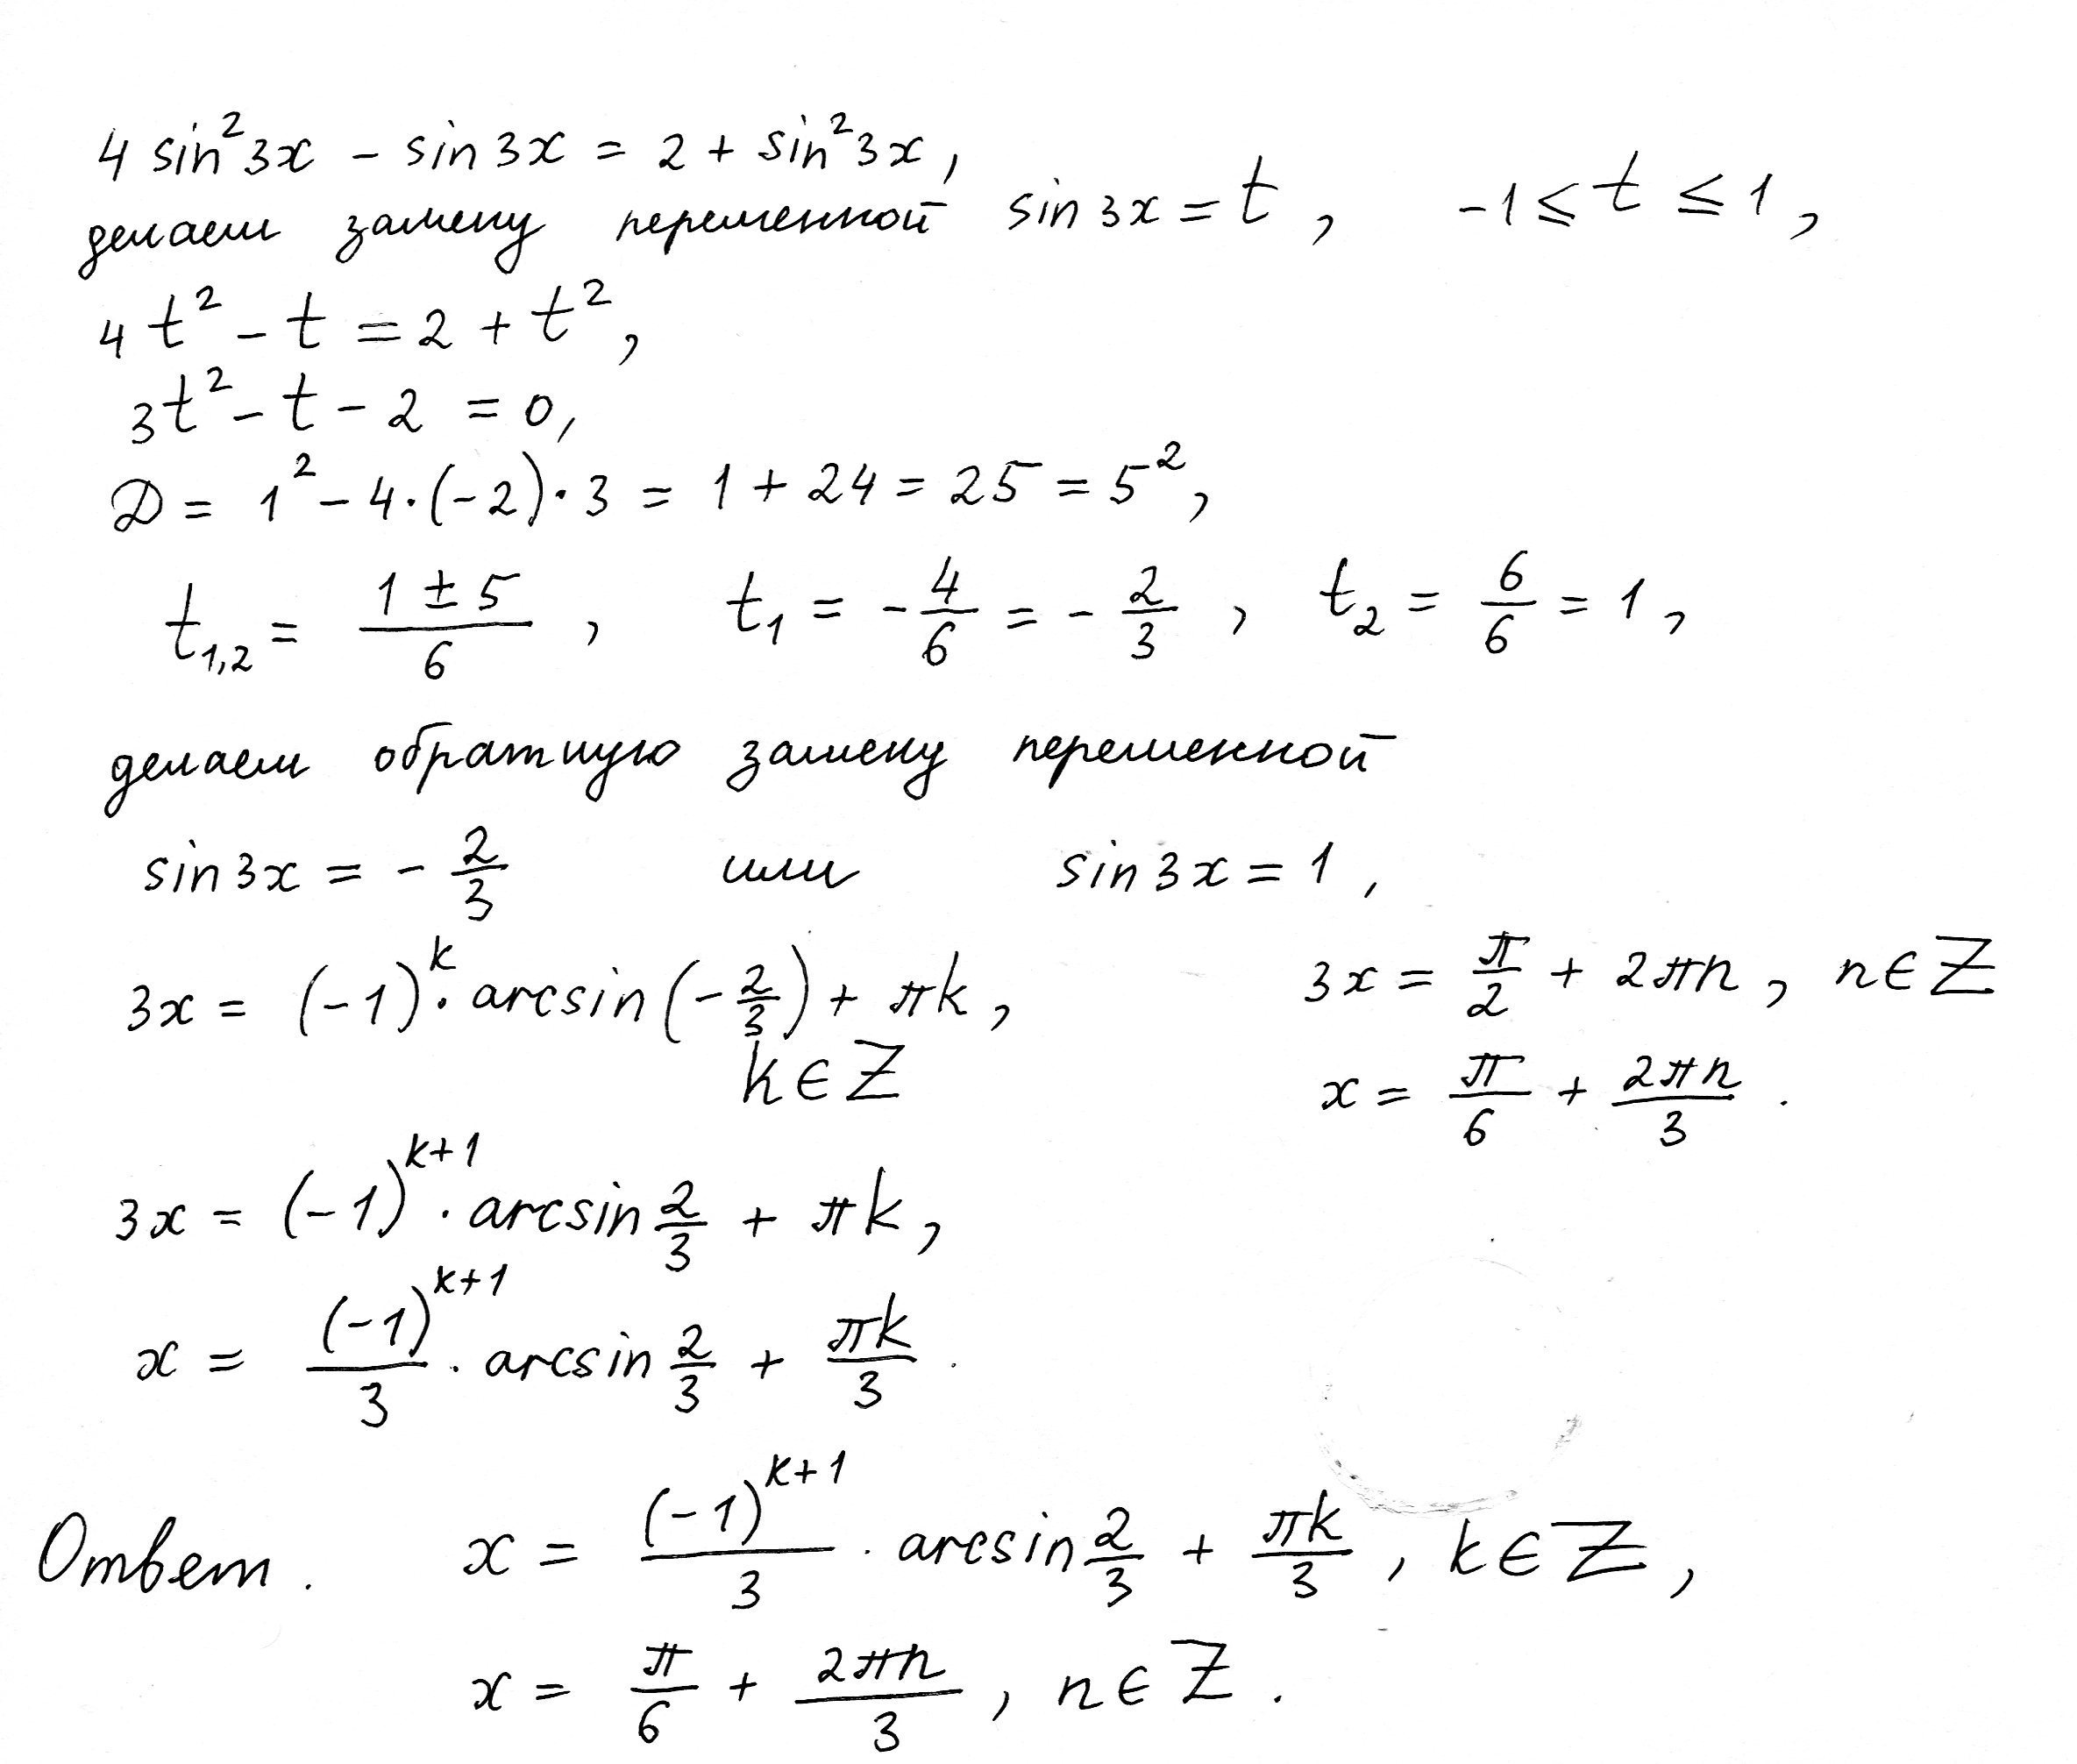 4 sin²3x - sin 3x = 2 + sin²3x,
делаем замену переменной sin 3x = t, -1 ≤ t ≤ 1,
4t² - t = 2 + t²,
3t² - t - 2 = 0,
D = 1² - 4·(-2)·3 = 1 + 24 = 25 = 5²,
t₁,₂ = (1 ± 5)/6, t₁ = -4/6 = -2/3, t₂ = 6/6 = 1,
делаем обратную замену переменной
sin 3x = -2/3 или sin 3x = 1,
3x = (-1)^k · arcsin(-2/3) + πk, 3x = π/2 + 2πn, n ∈ Z
k ∈ Z x = π/6 + 2πn/3.
3x = (-1)^(k+1) · arcsin 2/3 + πk,
x = (-1)^(k+1)/3 · arcsin 2/3 + πk/3.
Ответ. x = (-1)^(k+1)/3 · arcsin 2/3 + πk/3, k ∈ Z,
x = π/6 + 2πn/3, n ∈ Z.